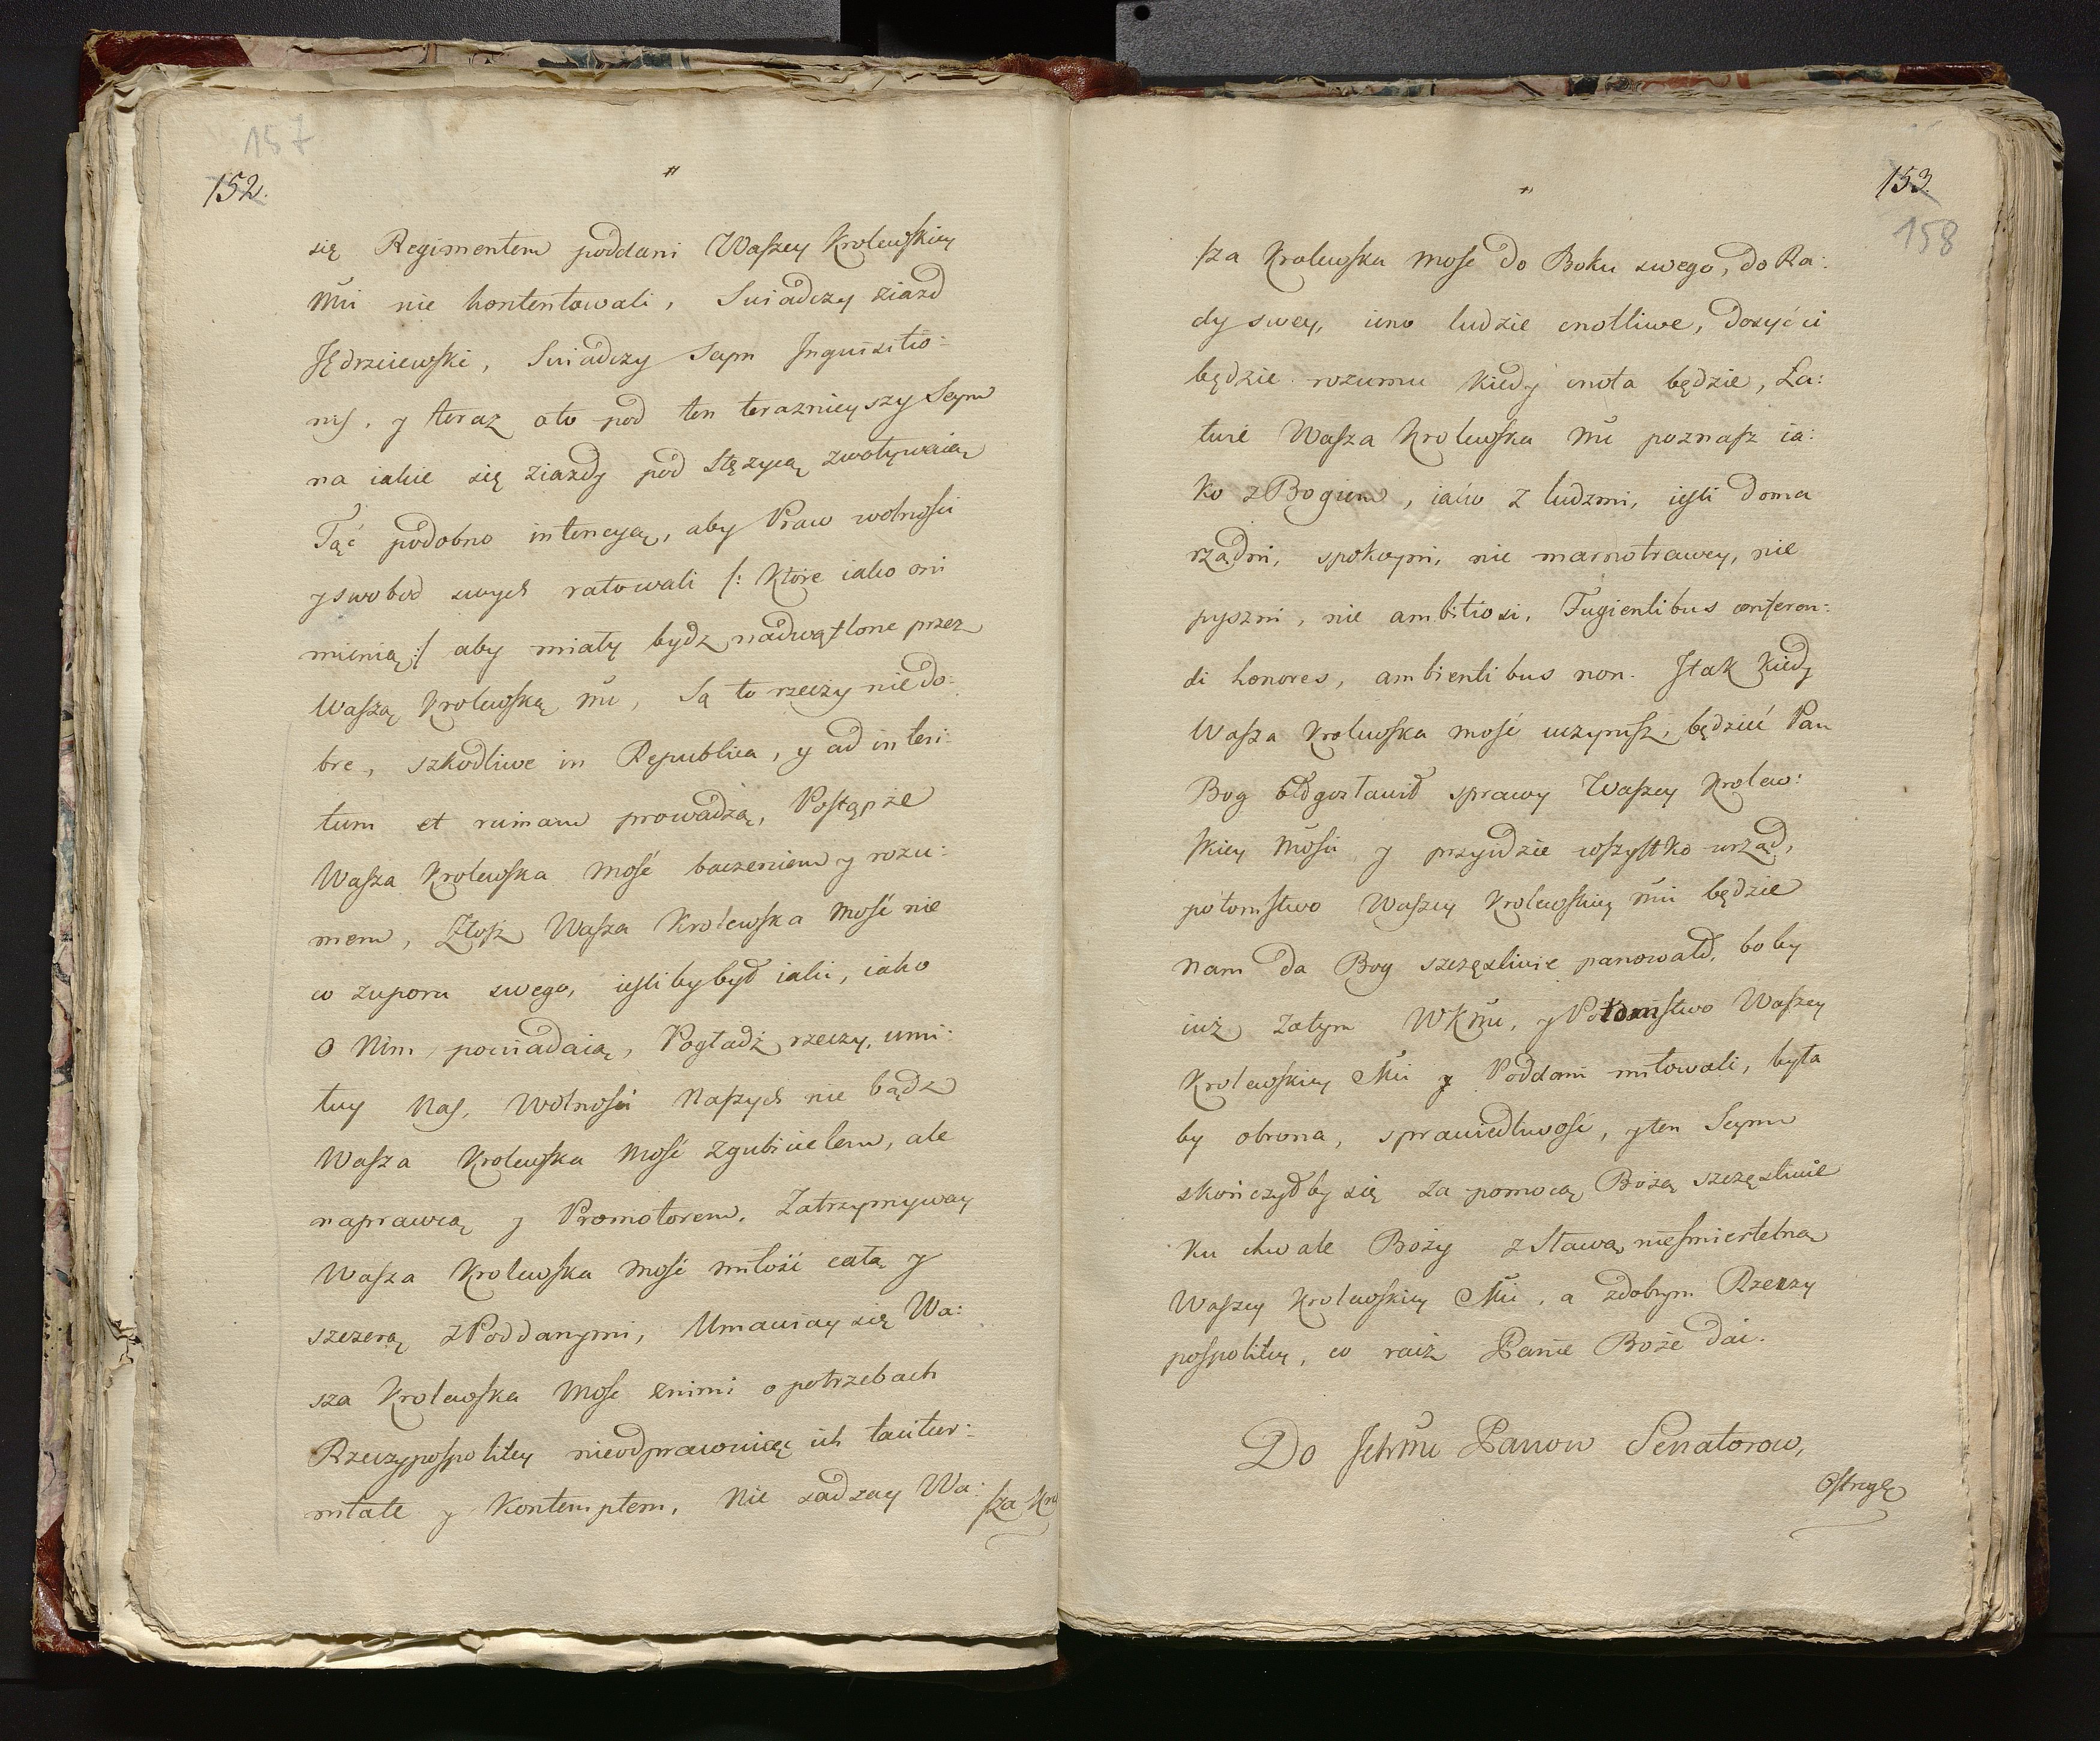 157
152.
się Regimentem poddani Waszey Krolewskiey
Mci nie kontentowali, Swiadczy ziazd
Jędrzeiewski, Swiadczy Seym Inquisitio:
nis, y teraz oto pod ten teraznieyszy Seym
na iakie się ziazdy pod Stęzycą zwoływaią
Tąć podobno intencyą, aby Praw wolnosci
y swobod swych ratowali /: Które iako oni
mienią :/ aby miały bydz nadwątlone przez
Waszą Krolewską Mć, Są to rzeczy niedo:
bre, szkodliwe in Republica, y ad interi:
tum et ruinam prowadzą, Postąp że
Wasza Krolewska Mość baczeniem y rozu:
mem, Złosz Wasza Krolewska Mość nie
co zuporu swego, iesliby był iaki, iako
o Nim powiadaią, Pogładź rzeczy, umi:
tuy Nas, Wolnosci Naszych nie bądz
Wasza Krolewska Mość zgubicielem, ale
naprawcą y Promotorem, Zatrzymyway
Wasza Krolewska Mość miłość całą y
szczerą z Poddanymi, Umawiay się Wa:
sza Krolewska Mosc znimi o potrzebach
Rzeczypospolitey nieodprawuiąc ich tacitur:
nitate y Kontemptem, Nie sadzay Wa:
sza Kro
153.
158
sza Krolewska Mosc do Boku swego, do Ra:
dy swey, ieno ludzie cnotliwe, dosyć ci
będzie rozumu kiedy cnota będzie, La:
twie Wasza Krolewska Mć poznasz ia:
ko z Bogiem, iako z ludzmi, iesli doma
rządni, spokoyni, nie marnotrawcy, nie
pyszni, nie ambitiosi, Fugientibus conferen:
di honores, ambientibus non. Itak Kiedy
Wasza Krolewska Mość uczynisz, będzieć Pan
Bog błogosławił sprawy Waszey Krolew:
skiey Mosci y przyidzie wszystko wrząd,
potomstwo Waszey Krolewskiey Mci będzie
nam da Bog szczęsliwie panowało, bo by
iuż zatym WKMć, y Potomstwo Waszey
Krolewskiey Mci y Poddani miłowali, była
by obrona, sprawiedliwość, y ten Seym
skończyłby się za pomocą Bożą szczęsliwie
ku chwale Boży z Sławą niesmiertelną
Waszey Krolewskiey Mci, a zdobrym Rzeczy
pospolitey, co racz Panie Boże dai.
Do Ichmć Panow Senatorow,
Ostrogę